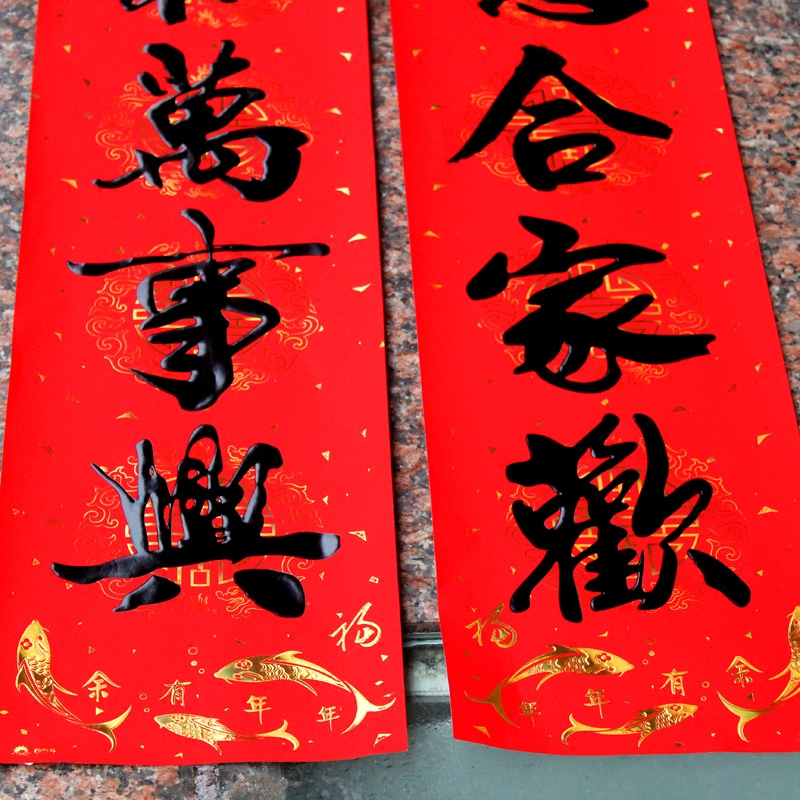 合家歡
萬事興
福
年年有余
福
年年有余